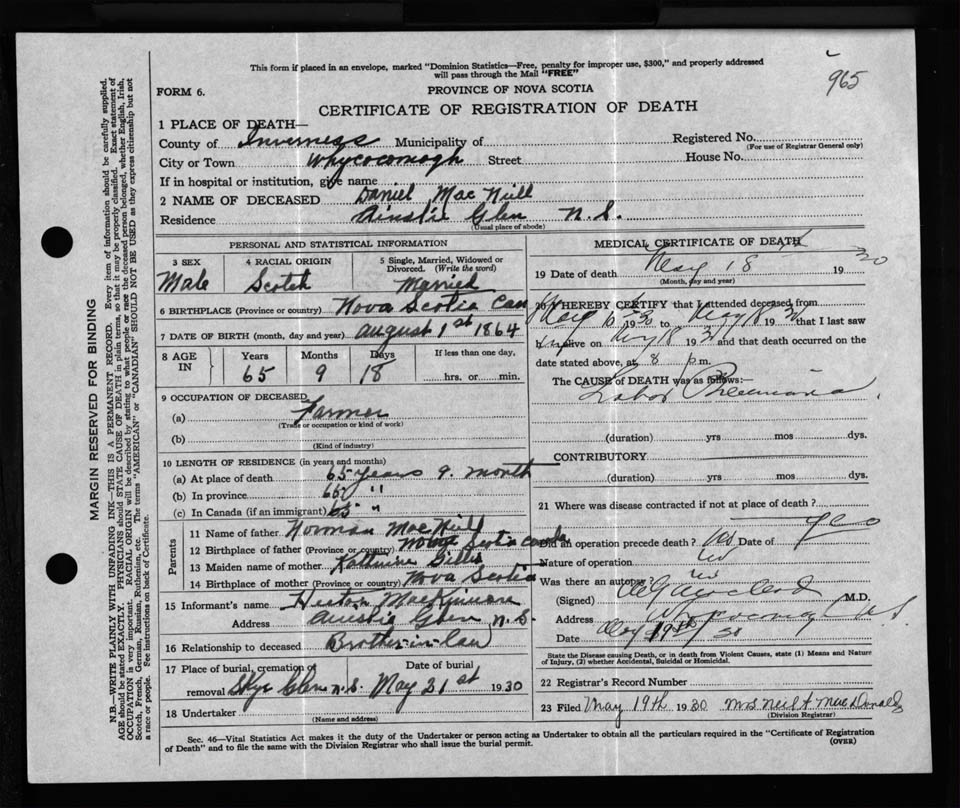 965
This form if placed in an envelope, marked "Dominion Statistics—Free, penalty for improper use, $300," and properly addressed
will pass through the Mail "FREE"
FORM 6.
PROVINCE OF NOVA SCOTIA
CERTIFICATE OF REGISTRATION OF DEATH
1 PLACE OF DEATH—
County of Inverness Municipality of
Registered No.
(For use of Registrar General only)
City or Town Whycocomagh Street House No.
If in hospital or institution, give name
2 NAME OF DECEASED Daniel MacNeill
Residence Ainslie Glen N.S.
(Usual place of abode)
PERSONAL AND STATISTICAL INFORMATION
3 SEX
Male
4 RACIAL ORIGIN
Scotch
5 Single, Married, Widowed or
Divorced. (Write the word)
Married
6 BIRTHPLACE (Province or country) Nova Scotia Can
7 DATE OF BIRTH (month, day and year) August 1st 1864
8 AGE IN
Years Months Days If less than one day,
65 9 18 hrs. or min.
9 OCCUPATION OF DECEASED
(a) Farmer
(Trade or occupation or kind of work)
(b)
(Kind of industry)
10 LENGTH OF RESIDENCE (in years and months)
(a) At place of death 65 years 9. month
(b) In province 65 "
(c) In Canada (if an immigrant) 65 "
Parents
11 Name of father Norman MacNeill
12 Birthplace of father (Province or country) Nova Scotia Canada
13 Maiden name of mother Katherine Gillis
14 Birthplace of mother (Province or country) Nova Scotia
15 Informant's name Hector MacKinnon
Address Ainslie Glen N.S.
16 Relationship to deceased Brother-in-law
17 Place of burial, cremation or
removal Skye Glen N.S.
Date of burial
May 21st 1930
18 Undertaker
(Name and address)
MEDICAL CERTIFICATE OF DEATH
19 Date of death May 18 1930
(Month, day and year)
20 I HEREBY CERTIFY that I attended deceased from
May 1930 to May 18 1930 that I last saw
h alive on May 18 193 and that death occurred on the
date stated above, at 8 p.m.
The CAUSE of DEATH was as follows:—
Lobar Pneumonia
(duration) yrs mos dys.
CONTRIBUTORY
(duration) yrs mos dys.
21 Where was disease contracted if not at place of death?
Did an operation precede death? Date of
Nature of operation
Was there an autopsy?
(Signed) M.D.
Address
Date May 19th 30
State the Disease causing Death, or in death from Violent Causes, state (1) Means and Nature
of Injury, (2) whether Accidental, Suicidal or Homicidal.
22 Registrar's Record Number
23 Filed May 19th 1930 Mrs Neil A MacDonald
(Division Registrar)
Sec. 46—Vital Statistics Act makes it the duty of the Undertaker or person acting as Undertaker to obtain all the particulars required in the "Certificate of Registration
of Death" and to file the same with the Division Registrar who shall issue the burial permit.
(OVER)
MARGIN RESERVED FOR BINDING
N.B.—WRITE PLAINLY WITH UNFADING INK—THIS IS A PERMANENT RECORD. Every item of information should be carefully supplied.
AGE should be stated EXACTLY. PHYSICIANS should STATE CAUSE OF DEATH in plain terms, so that it may be properly classified. Exact statement of
OCCUPATION is very important. RACIAL ORIGIN will be described by stating to what people or race the deceased person belonged, whether English, Irish,
Scotch, French, German, Russian, Ruthenian, etc. The terms "AMERICAN" or "CANADIAN" SHOULD NOT BE USED as they express citizenship but not
a race or people. See instructions on back of Certificate.